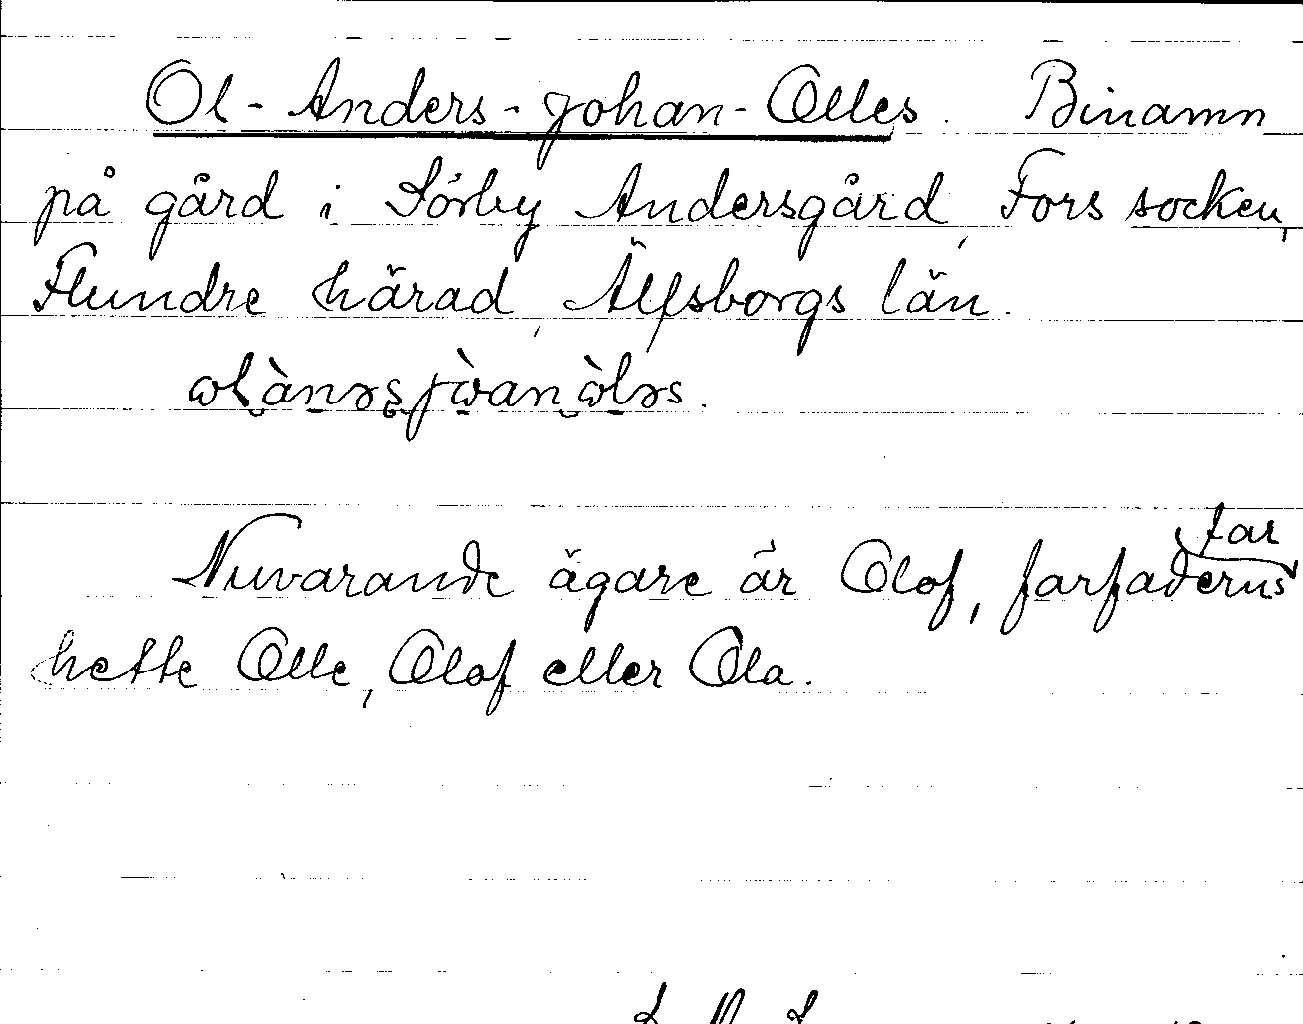 Ol-Anders-Johan-Olles. Binamn
på gård i Sörby Andersgård, Fors socken,
Flundre härad, Älfsborgs län.
Nuvarande ägare är Olof, farfaderns far
hette Olle, Olof eller Ola.